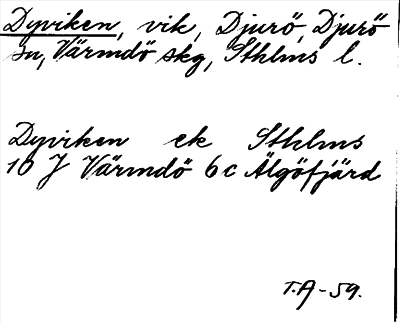 Dyviken, vik, Djurö, Djurö
sn, Värmdö skg, Sthlms l.
Dyviken ek Sthlms
10 J Värmdö 6c Älgöfjärd
T.A-59.